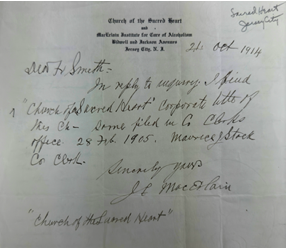 Church of the Sacred Heart
and
MacErlain Institute for Cure of Alcoholism
Bidwell and Jackson Avenues
Jersey City, N. J.
Sacred Heart
Jersey City
21 Oct 1914
Dear Fr Smith—
In reply to inquiry I find
"Church of the Sacred Heart" corporate title of
this Ch— same filed in Co Clerks
office 28 Feb. 1905. Maurice J Stack
Co Clerk.
Sincerely yours
"Church of the Sacred Heart"